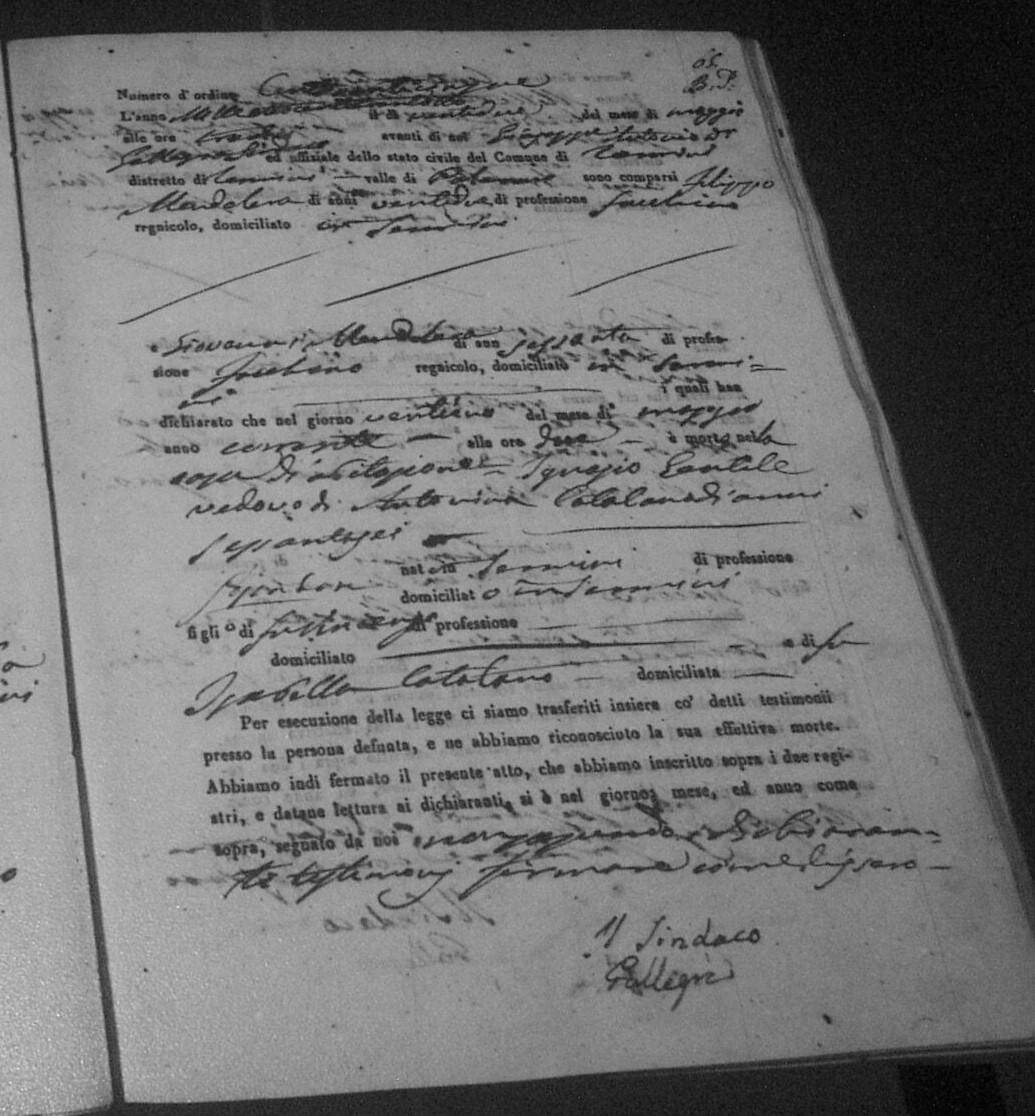 65.
B. P.
Numero d' ordine
L'anno il dì ventidue del mese di maggio
alle ore avanti di noi Giuseppe Antonio
Sindaco ed uffiziale dello stato civile del Comune di Termini
distretto di Termini valle di Palermo sono comparsi Filippo
Mendolera di anni ventidue di professione facchino
regnicolo, domiciliato in Termini
e Giovanni Mendolera di ann sessanta di profes-
sione facchino regnicolo, domiciliato in Termi=
ni i quali han
dichiarato che nel giorno ventuno del mese di maggio
anno corrente alle ore due è morto nella
casa di abitazione Ignazio Gentile
vedovo di Antonina Catalano di anni
sessantasei
nat o in Termini di professione
domiciliat o in Termini
figli o di di professione
domiciliato e di fu
Isabella Catalano domiciliata
Per esecuzione della legge ci siamo trasferiti insieme co' detti testimonii
presso la persona defunta, e ne abbiamo riconosciuto la sua effettiva morte.
Abbiamo indi fermato il presente atto, che abbiamo inscritto sopra i due regi-
stri, e datane lettura ai dichiaranti, si è nel giorno, mese, ed anno come
sopra, segnato da noi non sapendo i dichiaran=
ti testimonj firmare come dissero
Il Sindaco